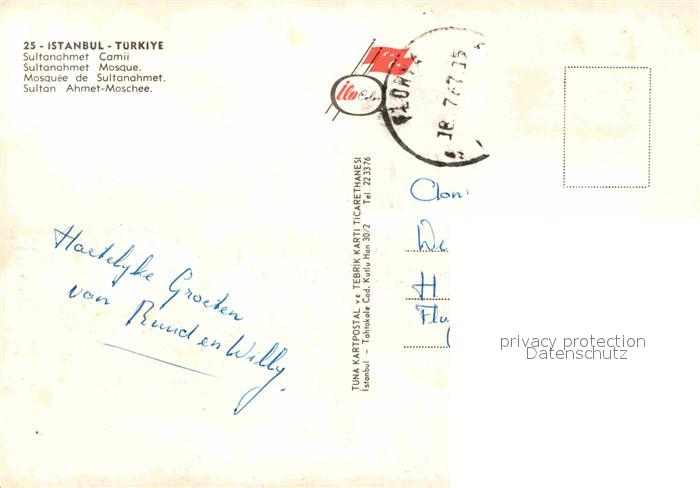 25 - İSTANBUL - TÜRKİYE
Sultanahmet Camii
Sultanahmet Mosque.
Mosquée de Sultanahmet.
Sultan Ahmet-Moschee.
ilo Color
18.7.67.15
Hartelijke Groeten
van Ruud en Willy.
TUNA KARTPOSTAL ve TEBRİK KARTI TİCARETHANESİ
İstanbul – Tahtakale Cad. Kutlu Han 30/2 Tel 22 33 76
H
privacy protection
Datenschutz